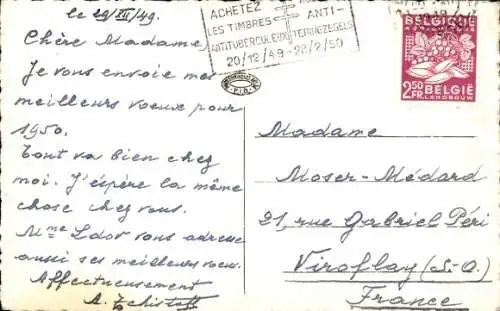 le 29/XII/49.
Chère Madame,
Je vous envoie mes
meilleurs voeux pour
1950.
Tout va bien chez
moi. J'éspère la même
chose chez vous.
Mme vous adresse
aussi ses meilleurs voeux.
Affectueusement
A.
ACHETEZ
LES TIMBRES ANTI-
ANTITUBERCULEUX TERINGZEGELS
20/12/49-28/2/50
BELGIQUE
BELGIË
2,50
FR
LANDBOUW
Madame
Moser-Médard
21, rue Gabriel Péri
Viroflay (S.-O.)
France